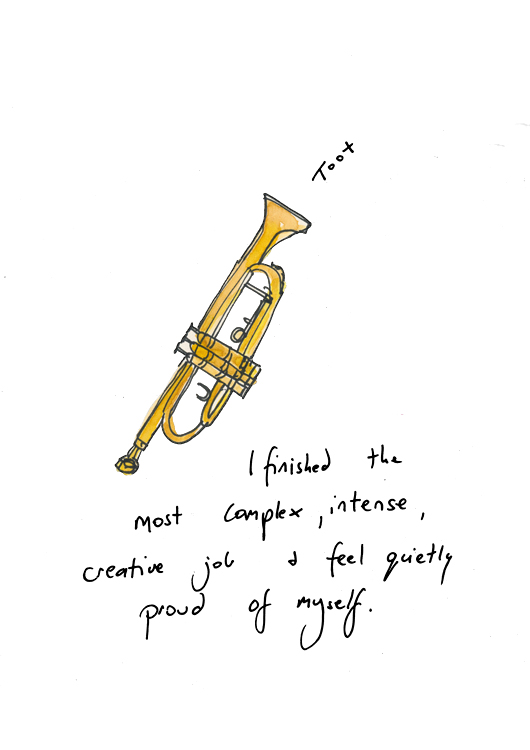 Toot
I finished the
most complex, intense,
creative job & feel quietly
proud of myself.